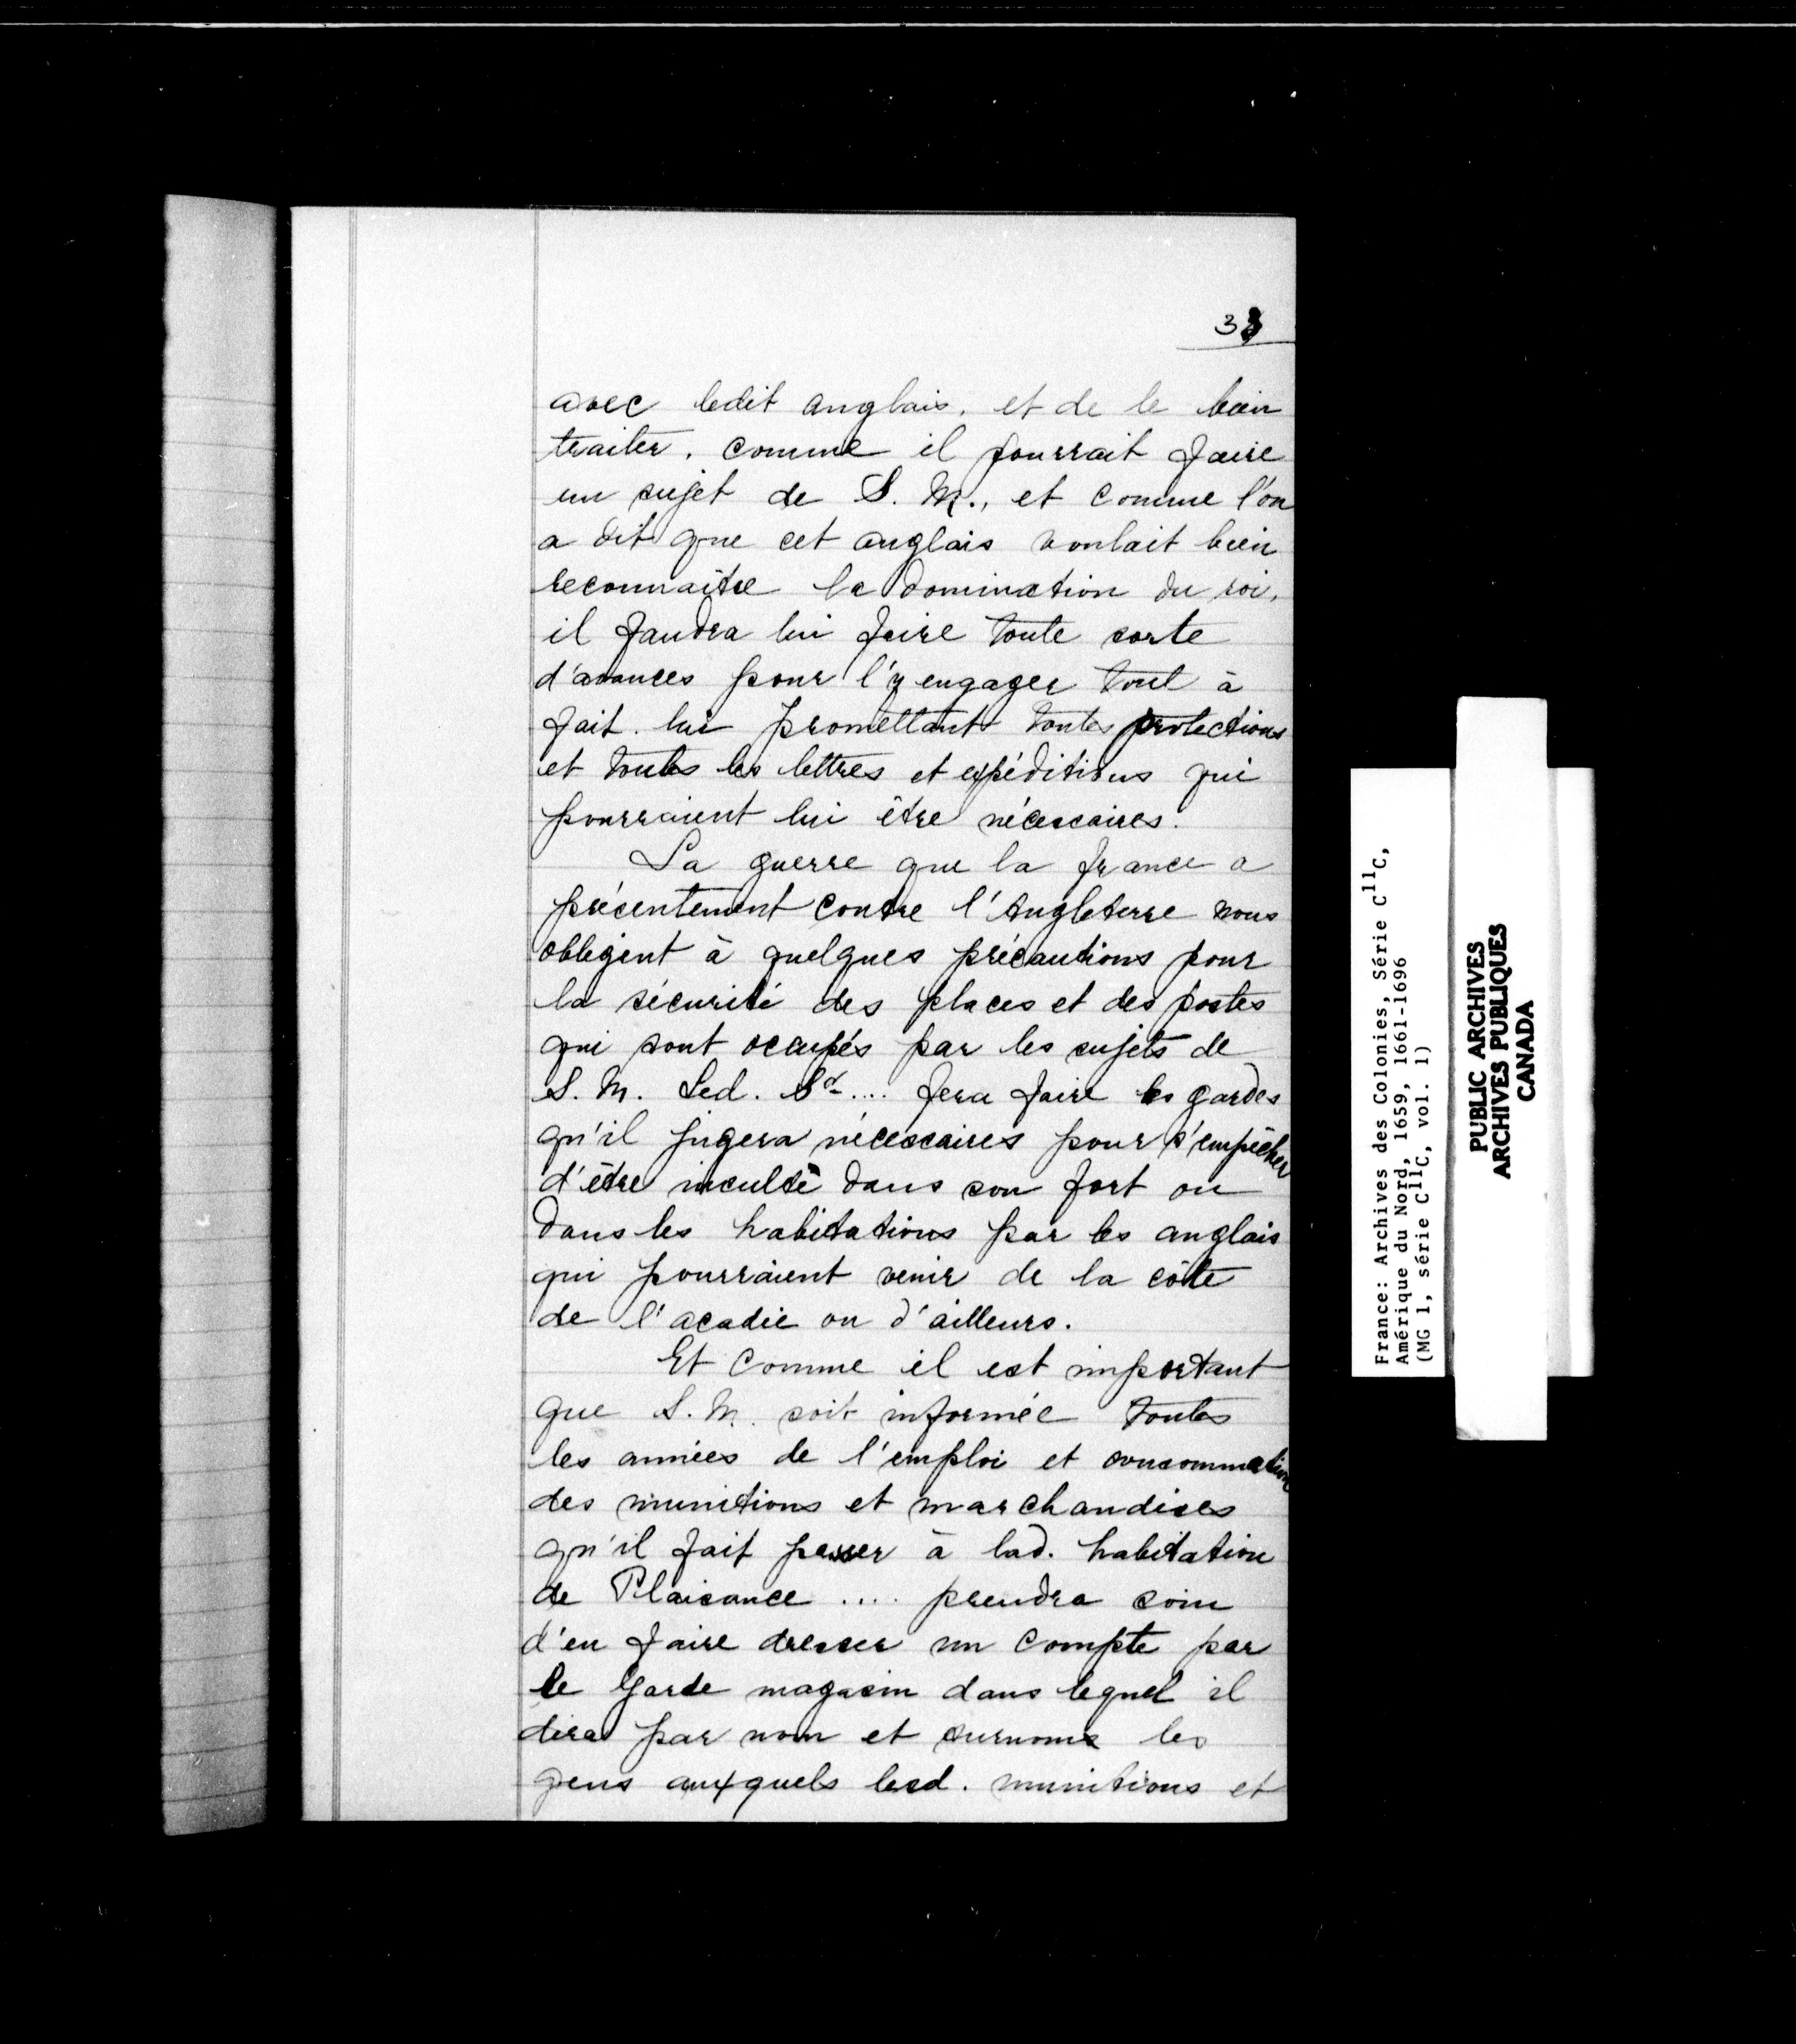 33
avec ledit anglais, et de le bien
traiter, comme il pourrait faire
un sujet de S. M., et comme l'on
a dit que cet anglais voulait bien
reconnaître la domination du roi,
il faudra lui faire toute sorte
d'avances pour l'y engager tout à
fait. lui promettant toutes protections
et toutes les lettres et expéditions qui
pourraient lui être nécessaires.
La guerre que la france a
présentement contre l'Angleterre nous
obligent à quelques précautions pour
la sécurité des places et des postes
qui sont occupés par les sujets de
S. M. Led. Sr .... fera faire les gardes
qu'il jugera nécessaires pour s'empêcher
d'être insulté dans son fort ou
dans les habitations par les anglais
qui pourraient venir de la côte
de l'acadie ou d'ailleurs.
Et comme il est important
que S. M. soit informée toutes
les années de l'emploi et consommation
des munitions et marchandises
qu'il fait passer à lad. habitation
de Plaisance .... prendra soin
d'en faire dresser un compte par
le Garde magasin dans lequel il
dira par nom et surnoms les
gens auxquels lesd. munitions et
France: Archives des Colonies, Série C11C,
Amérique du Nord, 1659, 1661-1696
(MG 1, série C11C, vol. 1)
PUBLIC ARCHIVES
ARCHIVES PUBLIQUES
CANADA